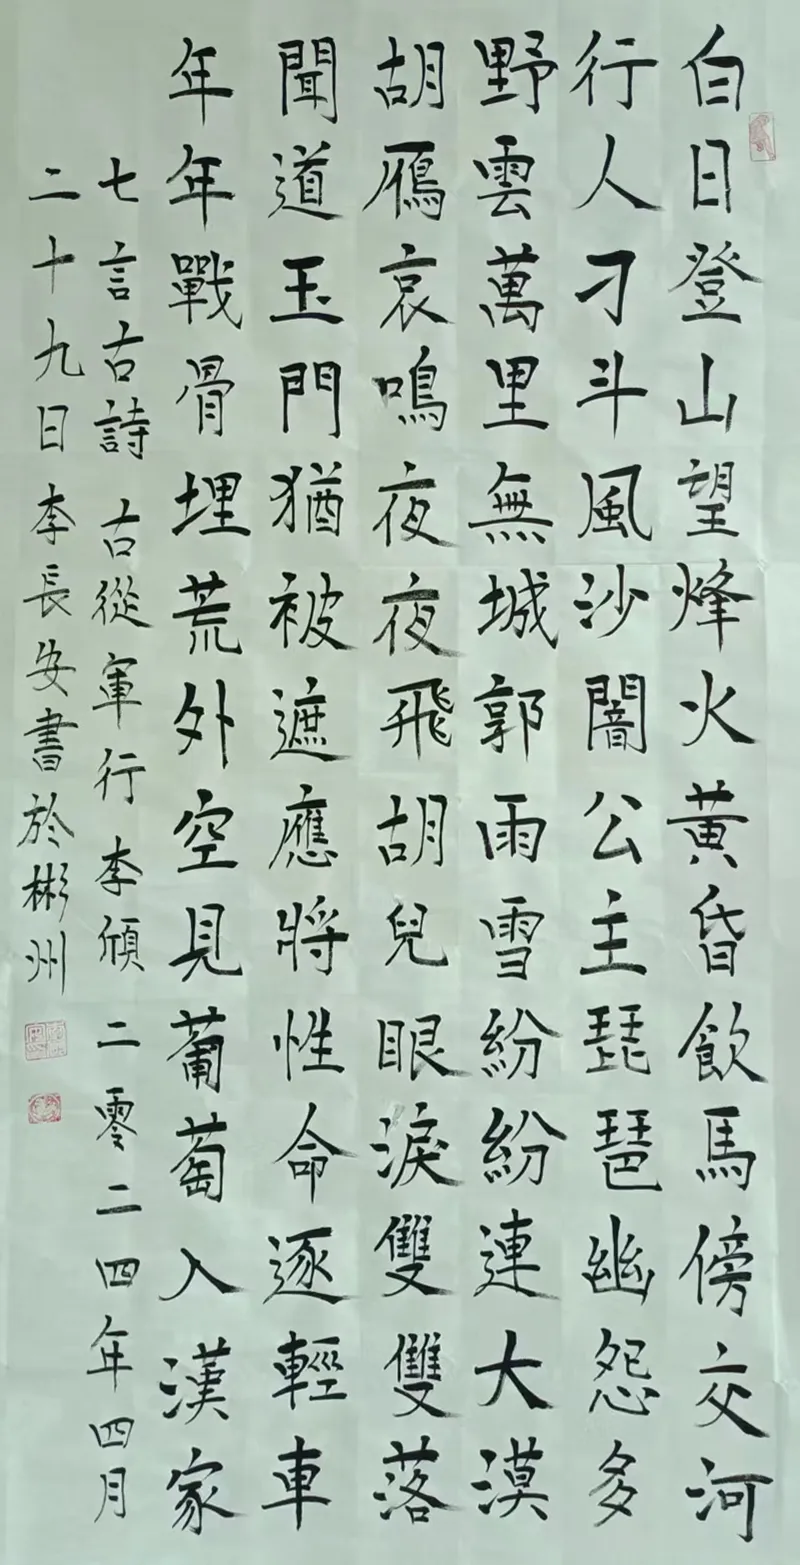 白日登山望烽火黃昏飲馬傍交河
行人刁斗風沙闇公主琵琶幽怨多
野雲萬里無城郭雨雪紛紛連大漠
胡雁哀鳴夜夜飛胡兒眼淚雙雙落
聞道玉門猶被遮應將性命逐輕車
年年戰骨埋荒外空見葡萄入漢家
七言古詩 古從軍行李頎二零二四年四月
二十九日李長安書於彬州